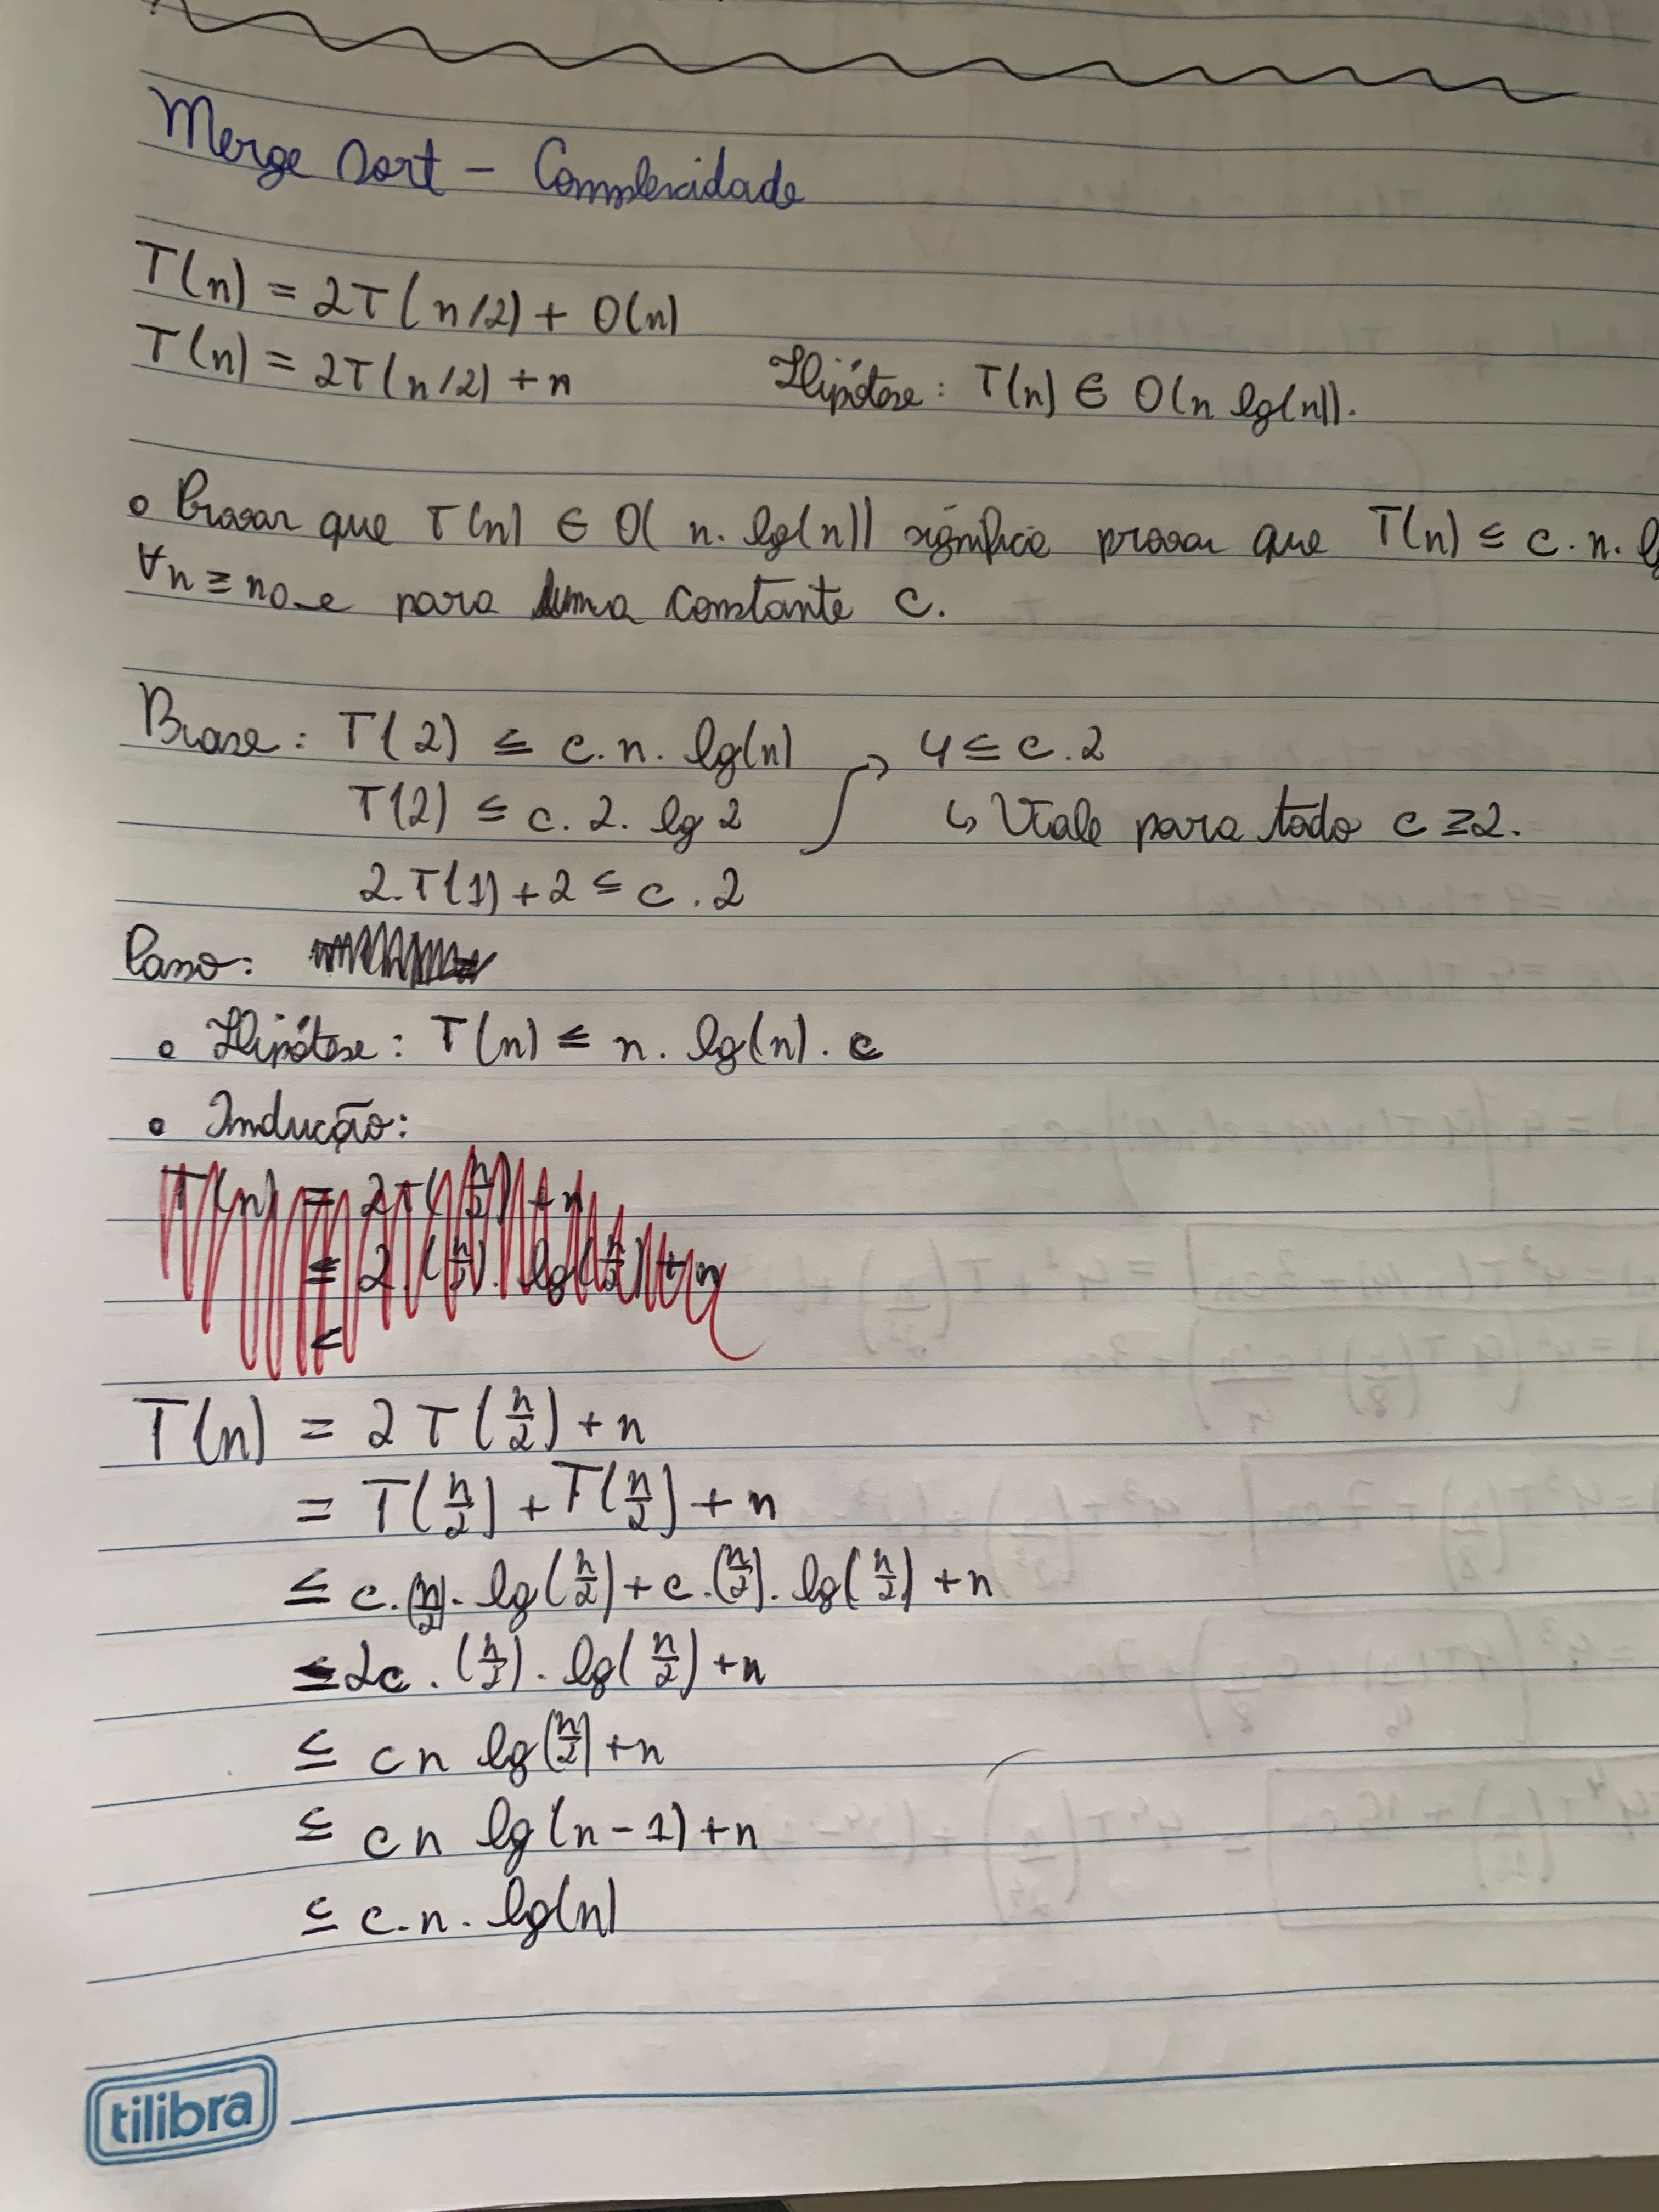 Merge Sort - Complexidade
T(n) = 2T(n/2) + O(n)
T(n) = 2T(n/2) + n Hipótese: T(n) ∈ O(n lg(n)).
• Provar que T(n) ∈ O(n. lg(n)) significa provar que T(n) ≤ c. n. l
∀n ≥ n0 e para uma constante c.
Base: T(2) ≤ c. n. lg(n) → 4 ≤ c. 2
T(2) ≤ c. 2. lg 2 ↳ Vale para todo c ≥ 2.
2. T(1) + 2 ≤ c. 2
Passo:
• Hipótese: T(n) ≤ n. lg(n). c
• Indução:
T(n) = 2T(n/2) + n
≤ 2. (n/2). lg(n/2) + n
≤
T(n) = 2T(n/2) + n
= T(n/2) + T(n/2) + n
≤ c. (n/2). lg(n/2) + c. (n/2). lg(n/2) + n
≤ 2c. (n/2). lg(n/2) + n
≤ cn lg(n/2) + n
≤ cn lg(n-1) + n
≤ c. n. lg(n)
tilibra